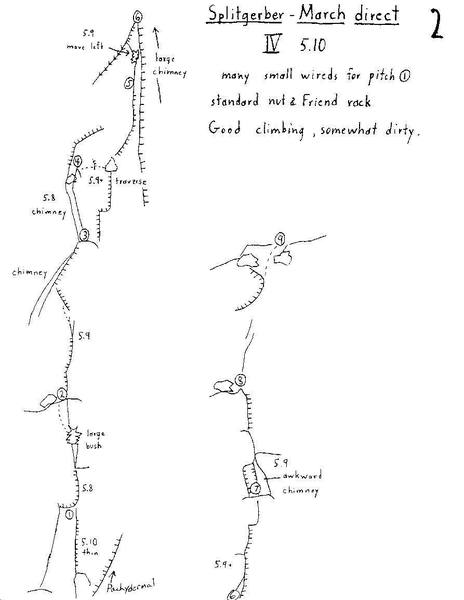 Splitgerber - March direct
2
IV 5.10
many small wireds for pitch ①
standard nut & Friend rack
Good climbing, somewhat dirty.
⑥
5.9
move left
large
chimney
⑤
④
5.9+
traverse
5.8
chimney
③
chimney
5.9
②
large
bush
5.8
①
5.10
thin
Pachydermal
⑨
⑧
5.9
awkward
chimney
⑦
5.9+
⑥